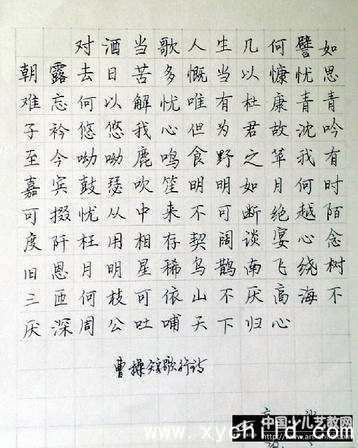 对酒当歌人生几何譬如
朝露去日苦多慨当以慷忧思
难忘何以解忧唯有杜康青青
子衿悠悠我心但为君故沈吟
至今呦呦鹿鸣食野之苹我有
嘉宾鼓瑟吹笙明明如月何时
可掇忧从中来不可断绝越陌
度阡枉用相存契阔谈宴心念
旧恩月明星稀乌鹊南飞绕树
三匝何枝可依山不厌高海不
厌深周公吐哺天下归心
曹操短歌行诗
中国少儿艺教网
www.xychild.com